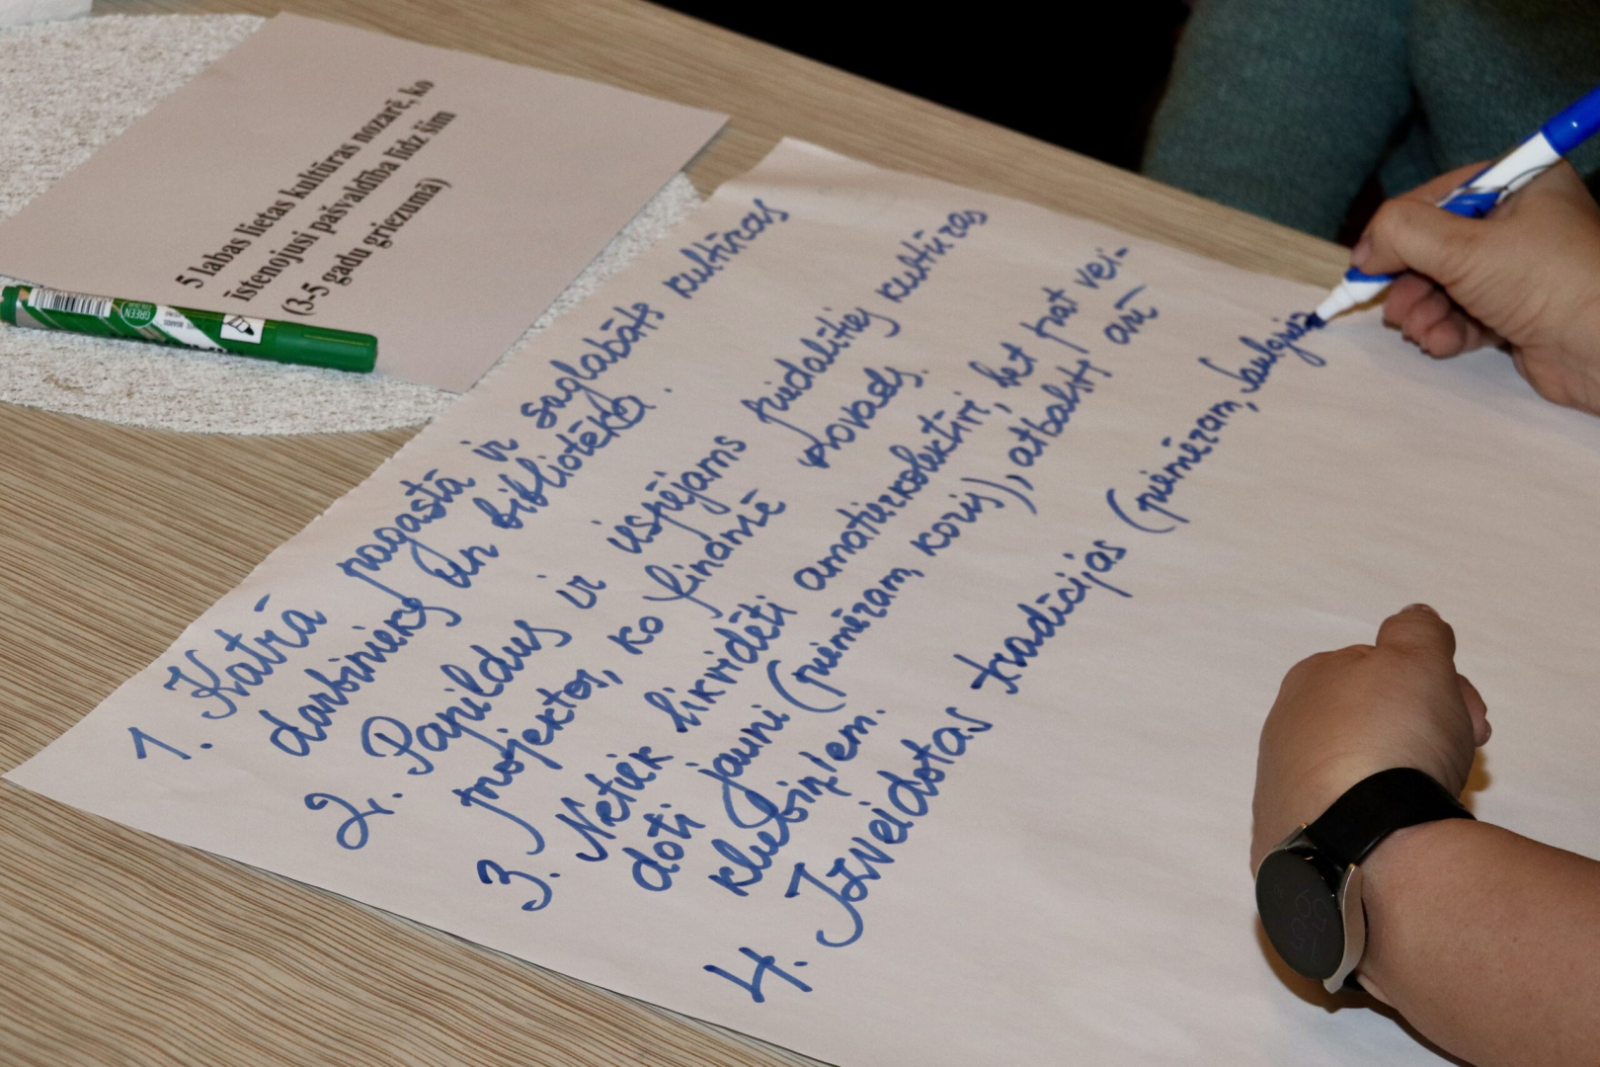 5 labas lietas kultūras nozarē, ko
īstenojusi pašvaldība līdz šim
(3-5 gadu griezumā)
GREEN
1. Katrā pagastā ir saglabāts kultūras
darbinieks un bibliotēka.
2. Papildus ir iespējams piedalīties kultūras
projektos, ko finansē novads.
3. Netiek likvidēti amatierkolektīvi, bet pat vei-
doti jauni (piemēram, koris), atbalsti arī
klubiņiem.
4. Izveidotas tradīcijas (piemēram,